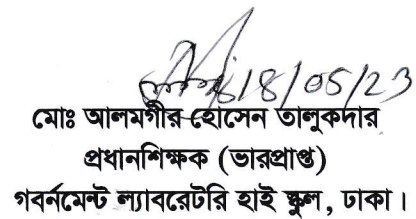 18/05/23
মোঃ আলমগীর হোসেন তালুকদার
প্রধানশিক্ষক (ভারপ্রাপ্ত)
গবর্নমেন্ট ল্যাবরেটরি হাই স্কুল, ঢাকা।